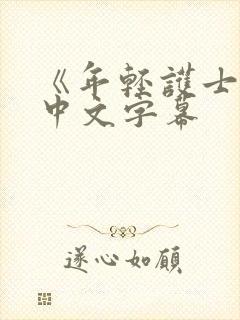 《年轻護士
中文字幕
遂心如願